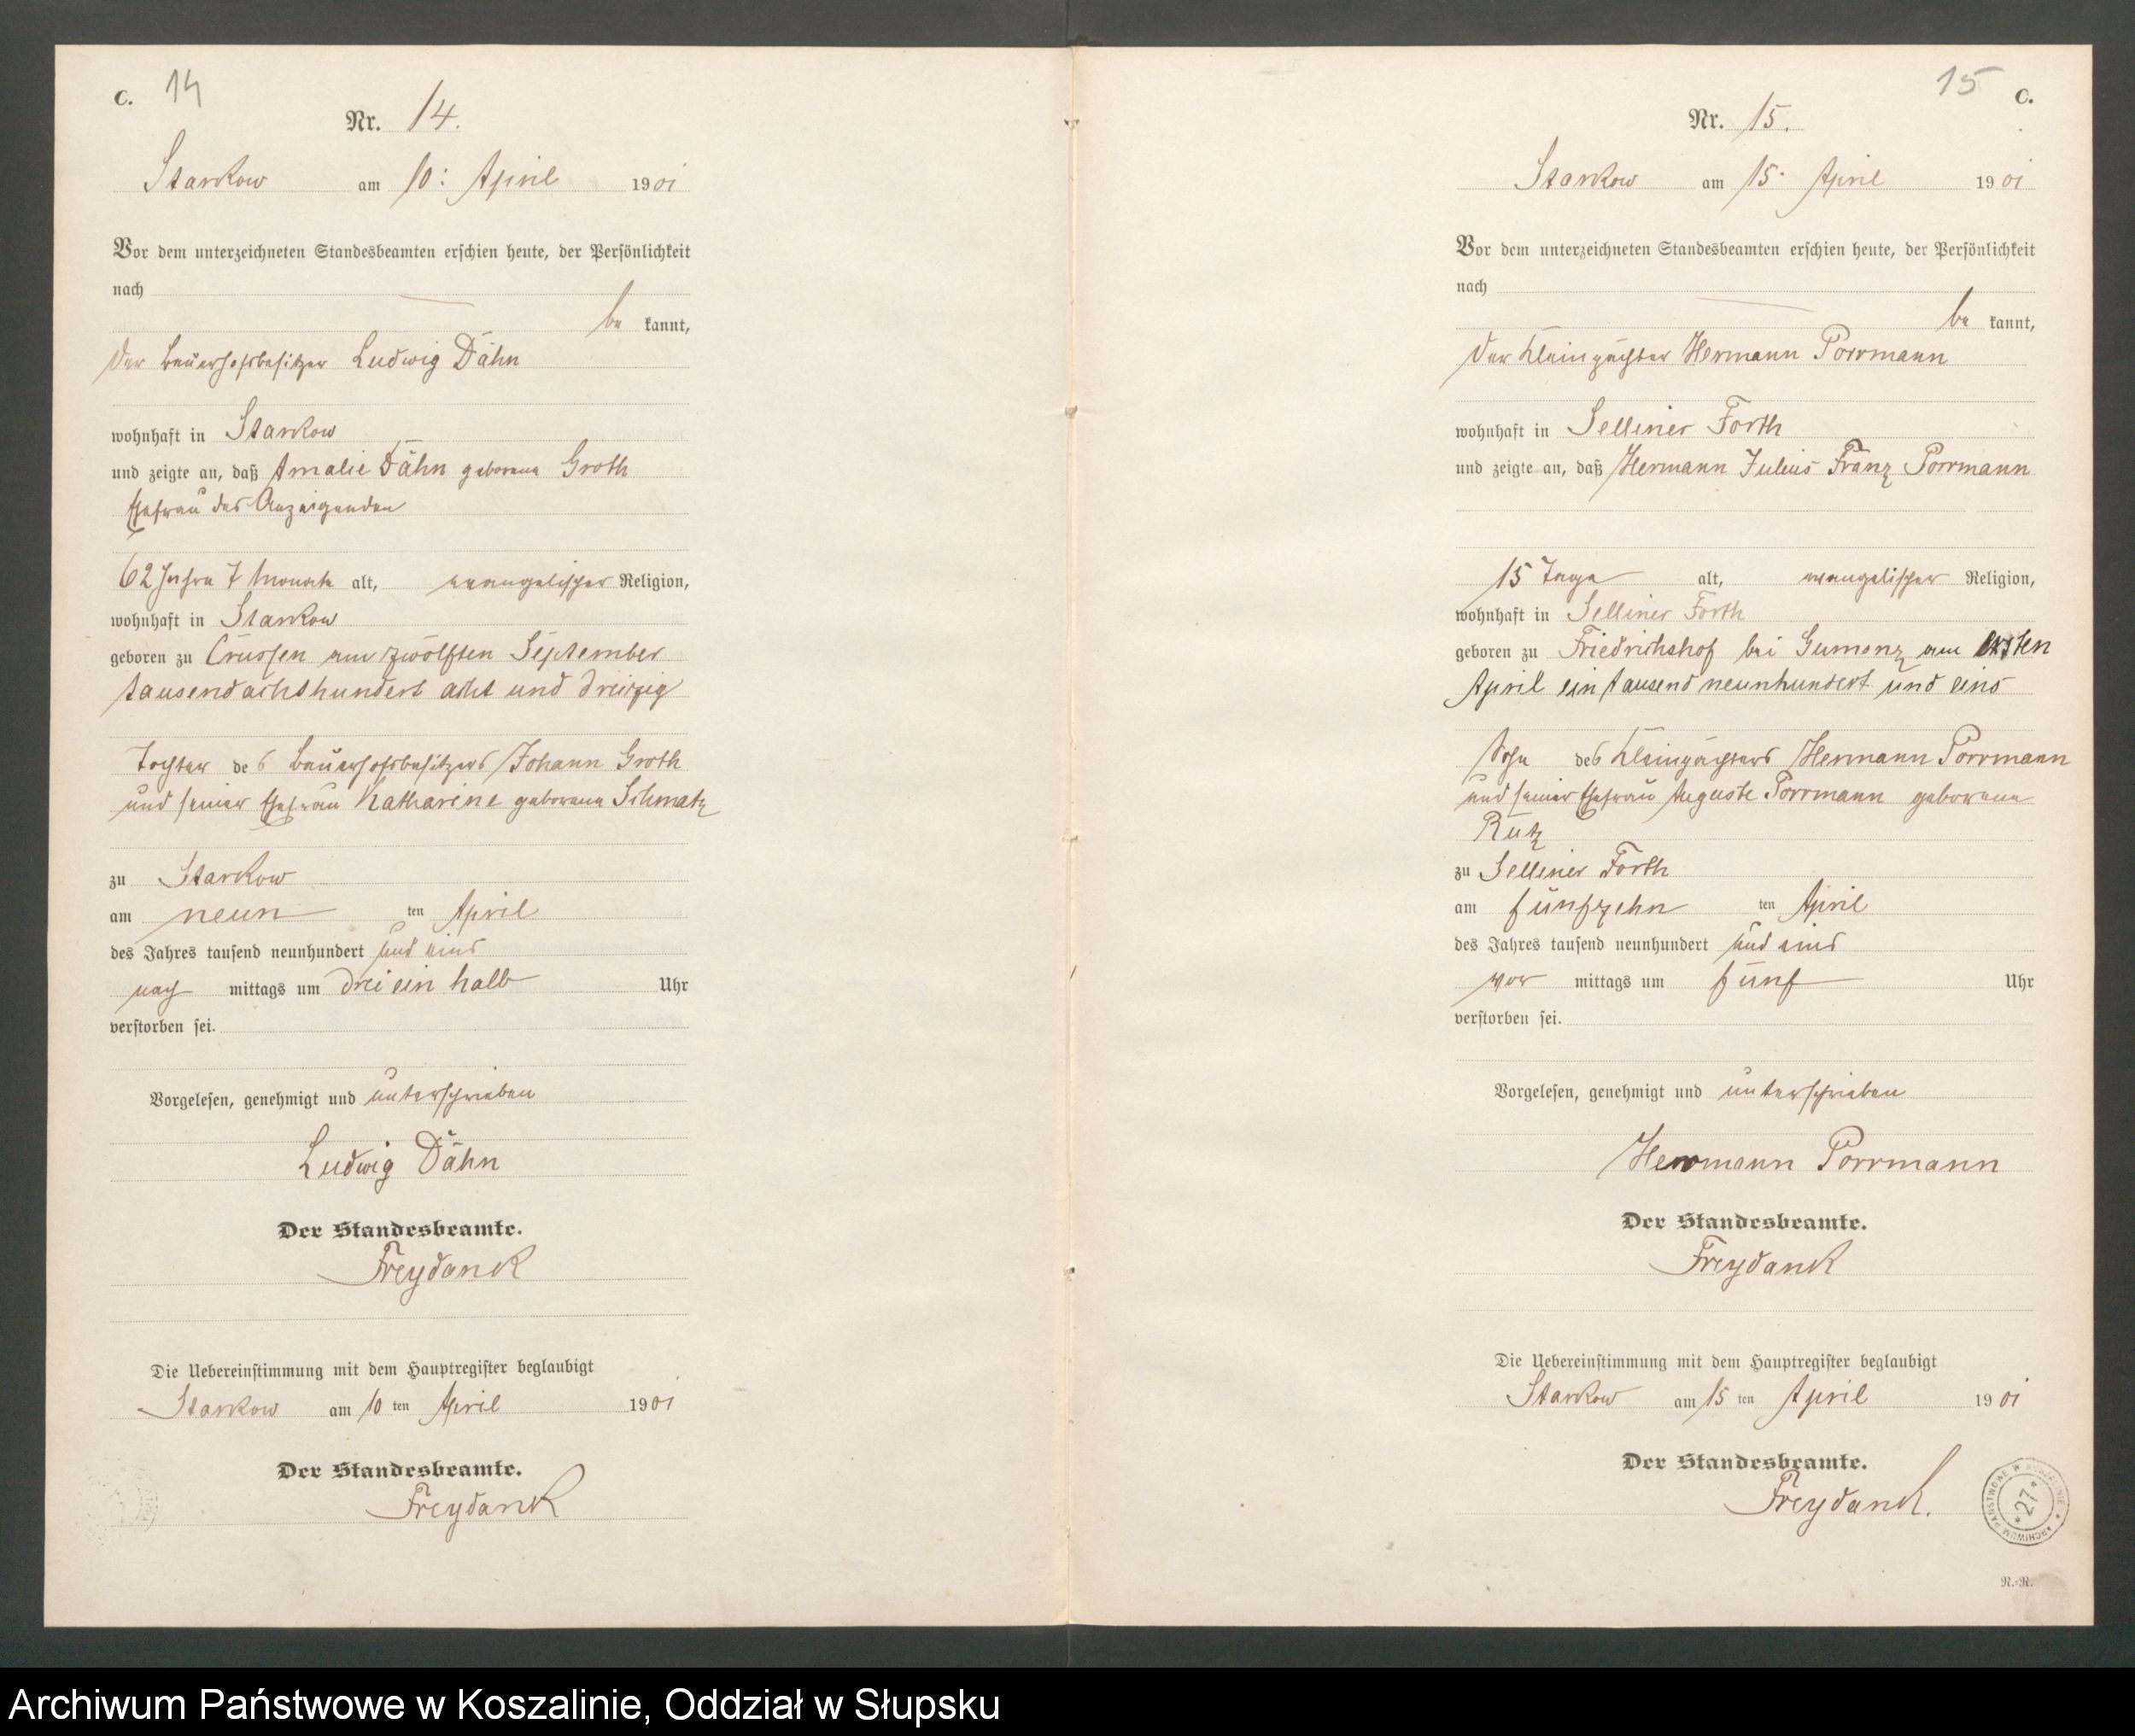 C. 14
Nr. 14.
Starkow am 10: April 1901
Vor dem unterzeichneten Standesbeamten erschien heute, der Persönlichkeit
nach
be kannt,
der Bauerhofsbesitzer Ludwig Dähn
wohnhaft in Starkow
und zeigte an, daß Amalie Dähn geborene Groth
Ehefrau des Anzeigenden
62 Jahre 7 Monate alt, evangelischer Religion,
wohnhaft in Starkow
geboren zu Crussen am zwölften September
tausendachthundert acht und dreißig
Tochter des Bauerhofsbesitzers Johann Groth
und seiner Ehefrau Katharine geborene Schmatz
zu Starkow
am neun ten April
des Jahres tausend neunhundert und eins
nach mittags um drei ein halb Uhr
verstorben sei.
Vorgelesen, genehmigt und unterschrieben
Ludwig Dähn
Der Standesbeamte.
Freydank
Die Uebereinstimmung mit dem Hauptregister beglaubigt
Starkow am 10 ten April 1901
Der Standesbeamte.
Freydank
15 C.
Nr. 15.
Starkow am 15. April 1901
Vor dem unterzeichneten Standesbeamten erschien heute, der Persönlichkeit
nach
be kannt,
der Kleinpächter Hermann Porrmann
wohnhaft in Selliner Forth
und zeigte an, daß Hermann Julius Franz Porrmann
15 Tage alt, evangelischer Religion,
wohnhaft in Selliner Forth
geboren zu Friedrichshof bei Gumenz am ersten
April ein tausend neunhundert und eins
Sohn des Kleinpächters Hermann Porrmann
und seiner Ehefrau Auguste Porrmann geborene
Rutz
zu Selliner Forth
am fünfzehn ten April
des Jahres tausend neunhundert und eins
vor mittags um fünf Uhr
verstorben sei.
Vorgelesen, genehmigt und unterschrieben
Hermann Porrmann
Der Standesbeamte.
Freydank
Die Uebereinstimmung mit dem Hauptregister beglaubigt
Starkow am 15 ten April 1901
Der Standesbeamte.
Freydank.
ARCHIWUM PAŃSTWOWE W KOSZALINIE
*27*
N.-N.
Archiwum Państwowe w Koszalinie, Oddział w Słupsku